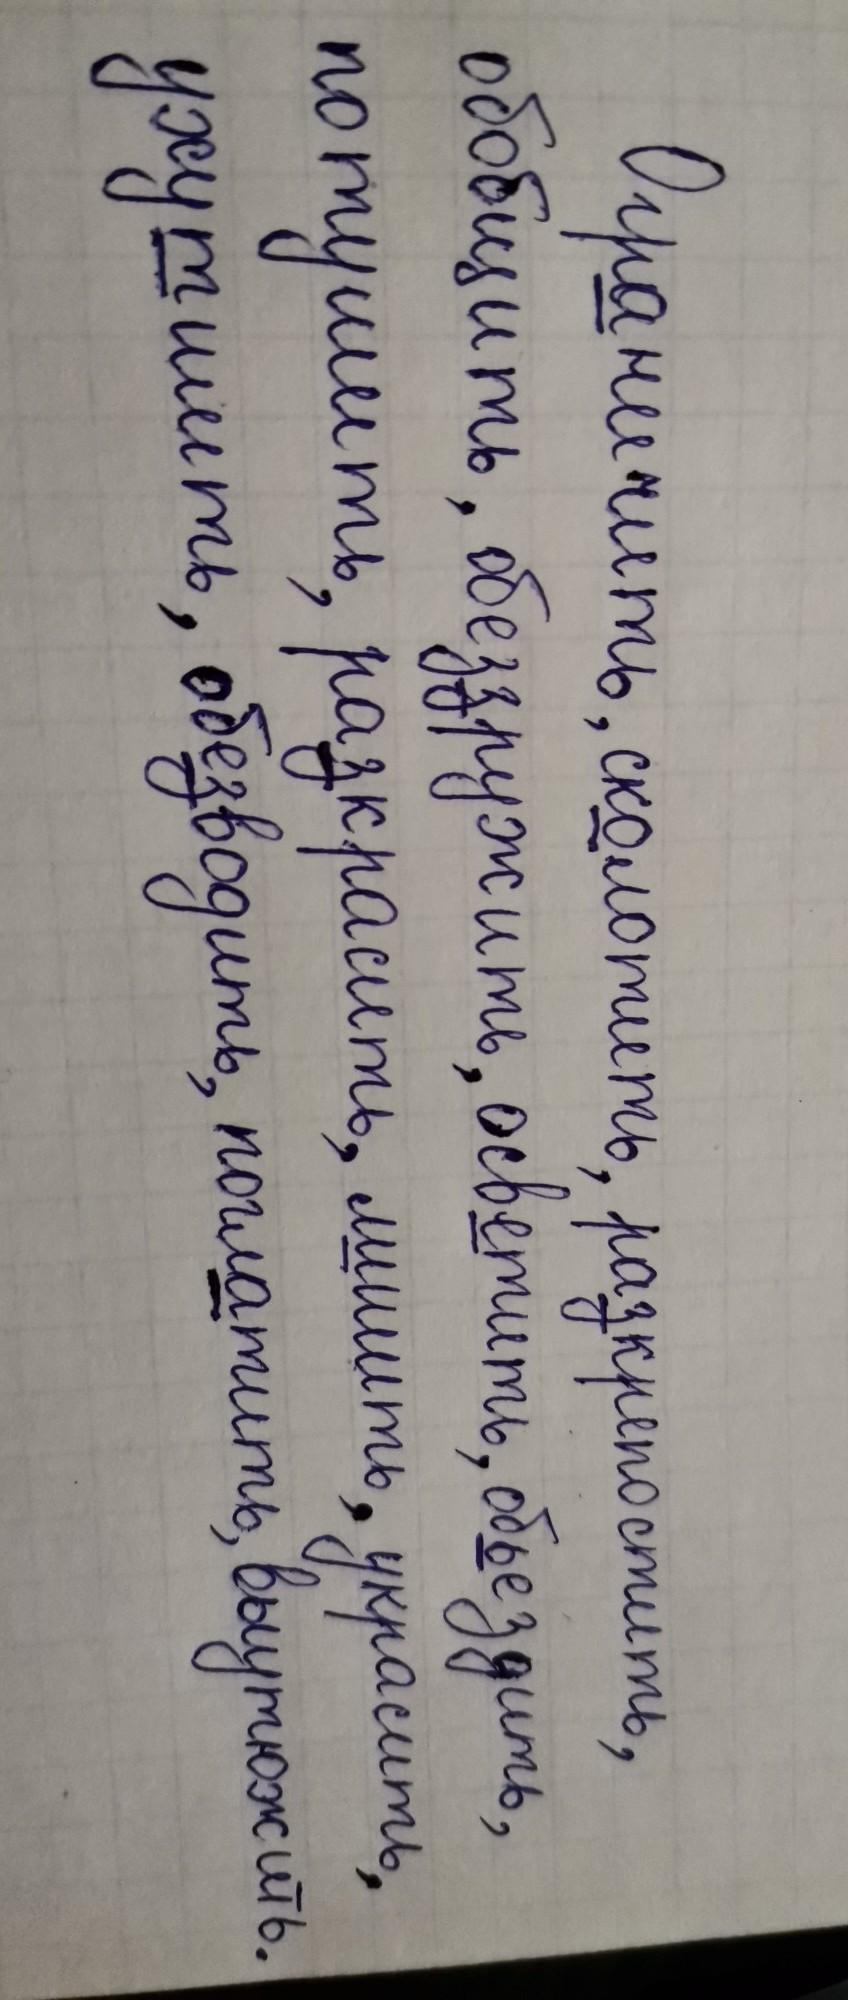 Ограничить, сколотить, разкрепостить,
обобщить, обеззружить, осветить, обьездить,
потушить, разкрасить, миить, украсить,
ухутшить, обезводить, поглатить, выутюжить.